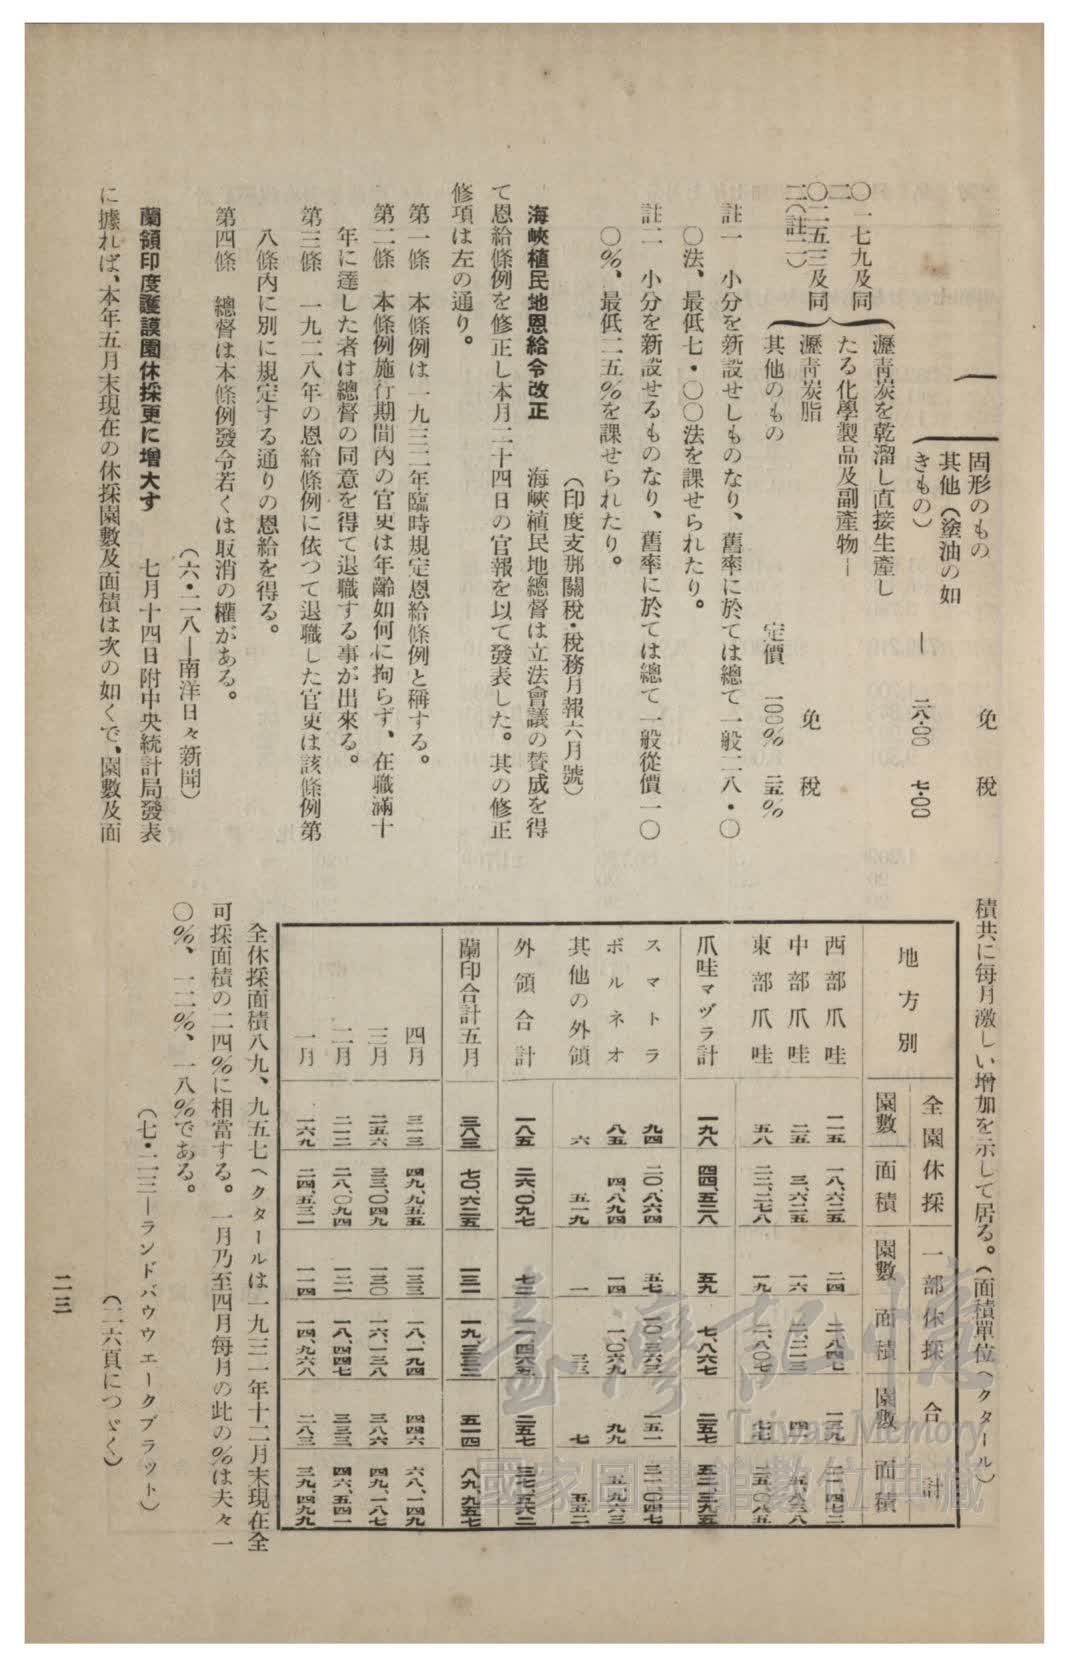 固形のもの　免　税
其他（塗油の如
きもの）　―　二八・〇〇　七・〇〇
瀝青炭を乾溜し直接生産し
たる化學製品及副產物―
瀝靑炭脂　免　税
其他のもの　定價　一〇〇％　二五％
〇一七九及同
〇二五三及同
二（註二）
註一　小分を新設せしものなり、舊率に於ては總て一般二八・〇
〇法、最低七・〇〇法を課せられたり。
註二　小分を新設せるものなり、舊率に於ては總て一般從價一〇
〇％、最低二五％を課せられたり。
（印度支那關稅・稅務月報六月號）
海峽植民地恩給令改正　海峽植民地總督は立法會議の賛成を得
て恩給條例を修正し本月二十四日の官報を以て發表した。其の修正
修項は左の通り。
第一條　本條例は一九三二年臨時規定恩給條例と稱する。
第二條　本條例施行期間內の官吏は年齡如何に拘らず、在職滿十
年に達した者は總督の同意を得て退職する事が出來る。
第三條　一九二八年の恩給條例に依つて退職した官吏は該條例第
八條內に別に規定する通りの恩給を得る。
第四條　總督は本條例發令若くは取消の權がある。
（六・二八―南洋日々新聞）
蘭領印度護謨園休採更に增大す　七月十四日附中央統計局發表
に據れば、本年五月末現在の休採園數及面積は次の如くで、園數及面
積共に每月激しい增加を示して居る。（面積單位ヘクタール）
地方別　全園休採　一部休採　合計
園數　面積　園數　面積　園數　面積
西部爪哇　一一五　一八、六二五　二四　二、八四七　一三九　二一、四七二
中部爪哇　二五　三、六二五　一六　二、二一三　四一　五、八三八
東部爪哇　五八　二二、二七八　一九　二、八〇七　七七　二五、〇八五
爪哇マヅラ計　一九八　四四、五二八　五九　七、八六七　二五七　五二、三九五
スマトラ　九四　二〇、六八四　五七　一〇、三六三　一五一　三一、〇四七
ボルネオ　八五　四、八九四　一四　一、〇六九　九九　五、九六三
其他の外領　六　五一九　一　三三　七　五五二
外領合計　一八五　二六、〇九七　七二　一一、四六五　二五七　三七、五六二
蘭印合計五月　三八三　七〇、六二五　一三一　一九、三三二　五一四　八九、九五七
四月　三一三　四九、九五五　一三三　一八、一九四　四四六　六八、一四九
三月　二五六　三三、〇四九　一三〇　一六、一三八　三八六　四九、一八七
二月　二一二　二八、〇九四　一二一　一八、四四七　三三三　四六、五四一
一月　一六九　二四、五三一　一一四　一四、九六八　二八三　三九、四九九
全休採面積八九、九五七ヘクタールは一九三一年十二月末現在全
可採面積の二四％に相當する。一月乃至四月每月の此の％は夫々一
〇％、一二％、一八％である。
（七・二三―ランドバウウェークブラット）
（二六頁につゞく）
二三
臺灣記憶
Taiwan Memory
國家圖書館數位典藏